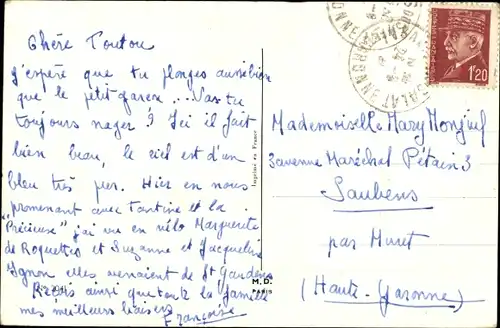 Chère Toutou
J'espère que tu plonges aussi bien
que le petit garçon ... Vas tu
toujours nager ? Ici il fait
bien beau, le ciel est d'un
bleu très pur. Hier en nous
promenant avec tantine et la
"Précieuse" j'ai vu en vélo Marguerite
de Roquettes et Suzanne et Jacqueline
Ignon elles venaient de St Gaudens
Reçois ainsi que toute la famille
mes meilleurs baisers
Françoise
Imprimé en France
M.D.
PARIS
1f20
Mademoiselle Mary
3 avenue Maréchal Pétain 3
Saubens
par Muret
(Haute-Garonne)